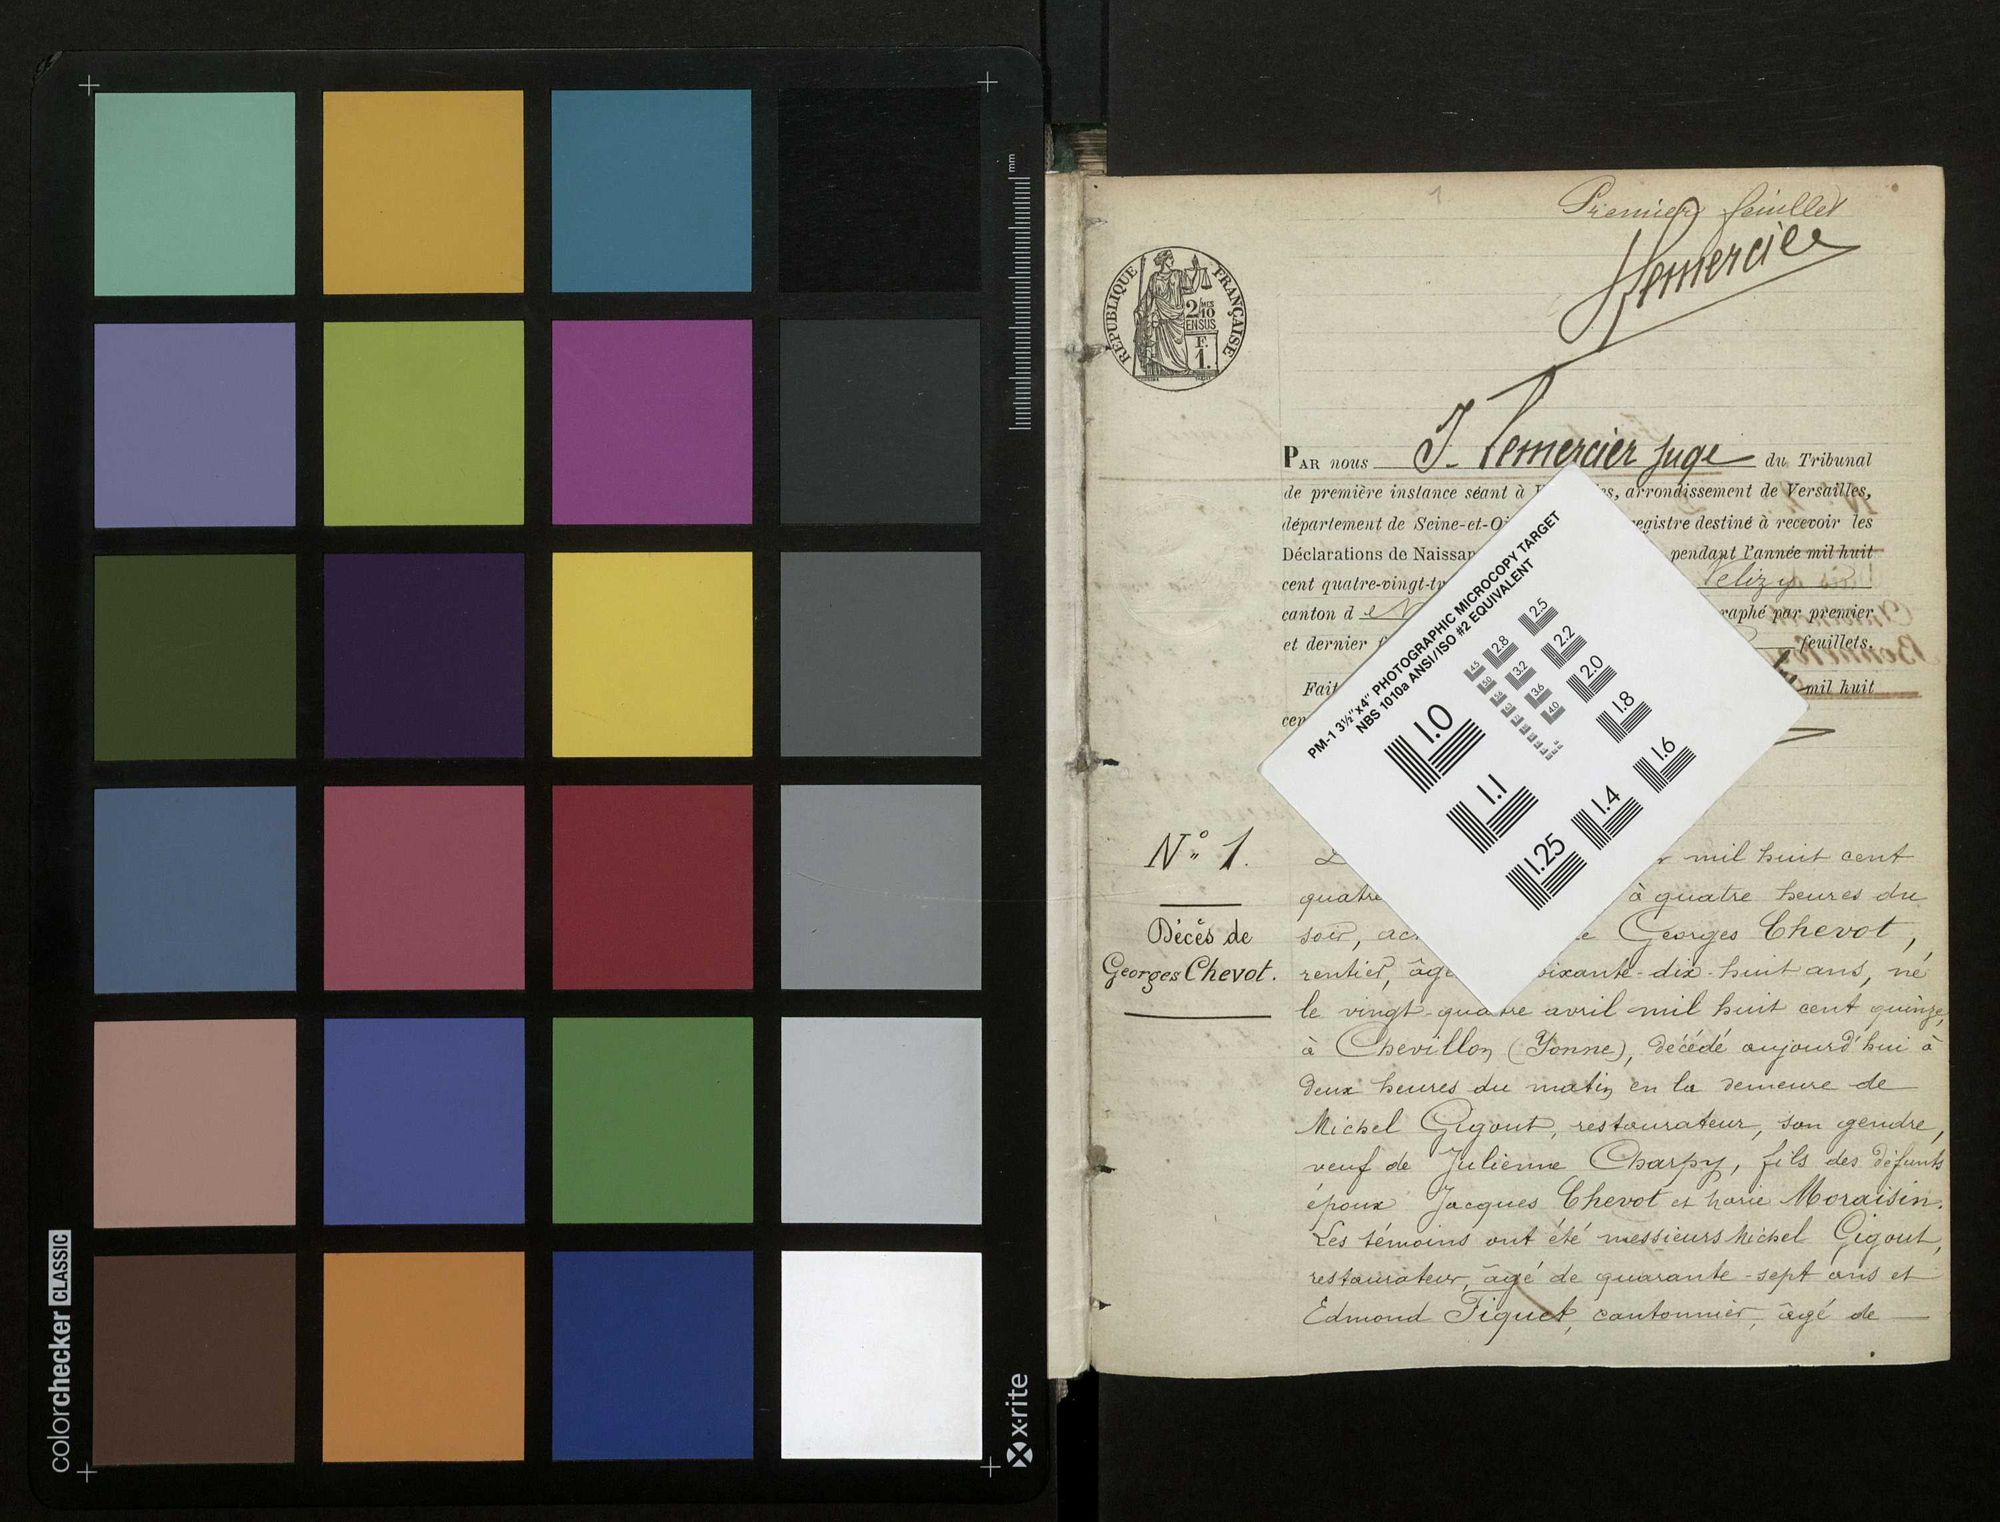 colorchecker CLASSIC
x-rite
mm
1
Premier feuillet
Lemercier
RÉPUBLIQUE FRANÇAISE
2/10 MES
EN SUS
F.
1.
PAR nous J. Lemercier juge du Tribunal
de première instance séant à es, arrondissement de Versailles,
département de Seine-et-Oi registre destiné à recevoir les
Déclarations de Naissan pendant l'année mil huit
cent quatre-vingt-tr Velizy
canton de raphé par premier
et dernier feuillets.
Fait mil huit
cen
PM-1 3½"x4" PHOTOGRAPHIC MICROCOPY TARGET
NBS 1010a ANSI/ISO #2 EQUIVALENT
1.0
1.1
1.25
1.4
1.6
1.8
2.0
2.2
2.5
2.8
3.2
3.6
4.0
4.5
5.0
5.6
N° 1.
Décès de
Georges Chevot.
mil huit cent
quatre à quatre heures du
soir, ac Georges Chevot,
rentier, âgé soixante-dix-huit ans, né
le vingt-quatre avril mil huit cent quinze,
à Chevillon (Yonne), décédé aujourd'hui à
deux heures du matin en la demeure de
Michel Gigout, restaurateur, son gendre,
veuf de Julienne Charpy, fils des défunts
époux Jacques Chevot et Marie Moraisin.
Les témoins ont été messieurs Michel Gigout,
restaurateur, âgé de quarante-sept ans et
Edmond Fiquet, cantonnier, âgé de